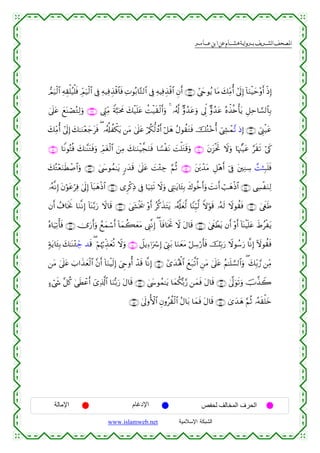 المصحف الشريف برواية هشام عن ابن عامر
إِذْ أَوْحَيْنَا إِلَىٰ أُمِّكَ مَا يُوحَىٰ أَنِ ٱقْذِفِيهِ فِى ٱلتَّابُوتِ فَٱقْذِفِيهِ فِى ٱلْيَمِّ فَلْيُلْقِهِ ٱلْيَمُّ
بِٱلسَّاحِلِ يَأْخُذْهُ عَدُوٌّ لِّى وَعَدُوٌّ لَّهُۥ وَأَلْقَيْتُ عَلَيْكَ مَحَبَّةً مِّنِّى وَلِتُصْنَعَ عَلَىٰ
عَيْنِى إِذ تَّمْشِى أُخْتُكَ فَتَقُولُ هَلْ أَدُلُّكُمْ عَلَىٰ مَن يَكْفُلُهُۥ فَرَجَعْنَٰكَ إِلَىٰ أُمِّكَ
كَىْ تَقَرَّ عَيْنُهَا وَلَا تَحْزَنَ وَقَتَلْتَ نَفْسًا فَنَجَّيْنَٰكَ مِنَ ٱلْغَمِّ وَفَتَنَّٰكَ فُتُونًا
فَلَبِثتَّ سِنِينَ فِى أَهْلِ مَدْيَنَ ثُمَّ جِئْتَ عَلَىٰ قَدَرٍ يَٰمُوسَىٰ وَٱصْطَنَعْتُكَ
لِنَفْسِى ٱذْهَبْ أَنتَ وَأَخُوكَ بِـَٔايَٰتِى وَلَا تَنِيَا فِى ذِكْرِى ٱذْهَبَا إِلَىٰ فِرْعَوْنَ إِنَّهُۥ
طَغَىٰ فَقُولَا لَهُۥ قَوْلًا لَّيِّنًا لَّعَلَّهُۥ يَتَذَكَّرُ أَوْ يَخْشَىٰ قَالَا رَبَّنَا إِنَّنَا نَخَافُ أَن
يَفْرُطَ عَلَيْنَا أَوْ أَن يَطْغَىٰ قَالَ لَا تَخَافَا إِنَّنِى مَعَكُمَا أَسْمَعُ وَأَرَىٰ فَأْتِيَاهُ
فَقُولَا إِنَّا رَسُولَا رَبِّكَ فَأَرْسِلْ مَعَنَا بَنِى إِسْرَٰٓءِيلَ وَلَا تُعَذِّبْهُمْ قَد جِّئْنَٰكَ بِـَٔايَةٍ
مِّن رَّبِّكَ وَٱلسَّلَٰمُ عَلَىٰ مَنِ ٱتَّبَعَ ٱلْهُدَىٰ إِنَّا قَدْ أُوحِىَ إِلَيْنَا أَنَّ ٱلْعَذَابَ عَلَىٰ مَن
كَذَّبَ وَتَوَلَّىٰ قَالَ فَمَن رَّبُّكُمَا يَٰمُوسَىٰ قَالَ رَبُّنَا ٱلَّذِى أَعْطَىٰ كُلَّ شَىْءٍ
خَلْقَهُۥ ثُمَّ هَدَىٰ قَالَ فَمَا بَالُ ٱلْقُرُونِ ٱلْأُولَىٰ
الحرف المخالف لحفص الإدغام الإمالة
الشبكة الإسلامية www.islamweb.net